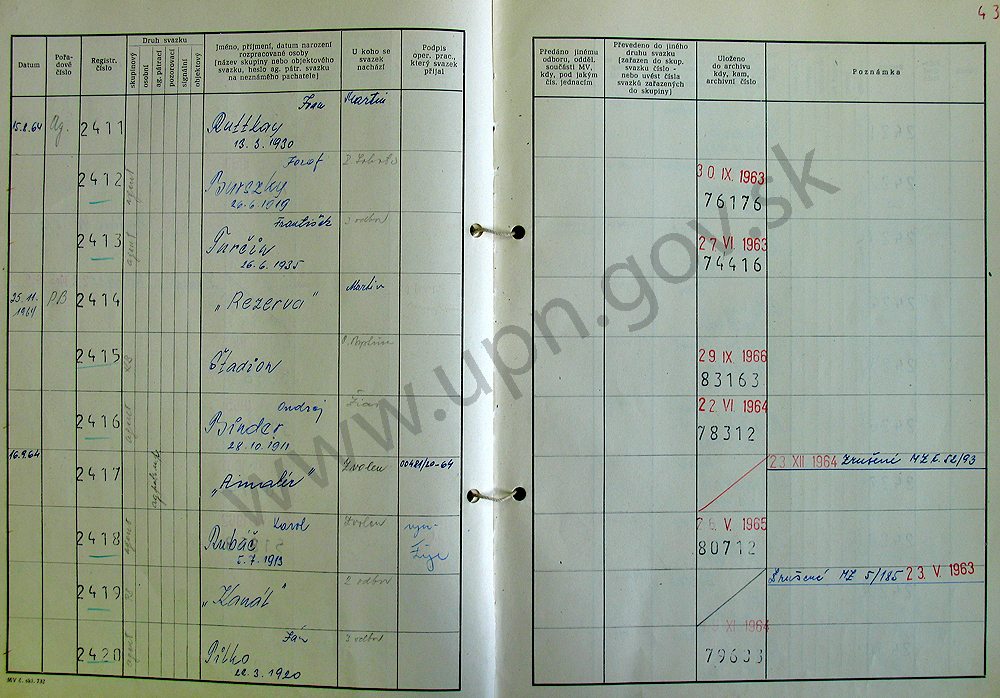 43
Datum
Pořa-
dové
číslo
Registr.
číslo
Druh svazku
skupinový
osobní
ag. pátrací
pozorovací
signální
objektový
Jméno, příjmení, datum narození
rozpracované osoby
(název skupiny nebo objektového
svazku, heslo ag. pátr. svazku
na neznámého pachatele)
U koho se
svazek
nachází
Podpis
oper. prac.,
který svazek
přijal
Předáno jinému
odboru, odděl.
součásti MV,
kdy, pod jakým
čís. jednacím
Převedeno do jiného
druhu svazku
(zařazen do skup.
svazku číslo –
nebo uvést čísla
svazků zařazených
do skupiny)
Uloženo
do archivu
kdy, kam,
archivní číslo
Poznámka
15.8.64 Ag. 2411 Ivan Martin
Ruttkay
13.3.1930
2412 agent Jozef
Burszky
26.6.1919
30 IX. 1963
76176
2413 agent František 3 odbor
Turčin
26.6.1935
27 VI. 1963
74416
25.11.
1964
PB 2414 „Rezerva" Martin
2415 Štadion
29 IX. 1966
83163
2416 agent Ondrej Žiar
Binder
28.10.1911
22 VI. 1964
78312
16.9.64 2417 „Amatér" Zvolen 00481/20-64
23 XII 1964 Zrušené MZ č. 52/93
2418 agent Karol Zvolen
Rubáč
5.7.1913
26. V. 1965
80712
2419 „Kanál" 2 odbor
Zrušené MZ 5/185 23. V. 1963
2420 agent Ján 3 odbor
Pilko
22.3.1920
XI 1964
79633
MV č. skl. 732
www.upn.gov.sk